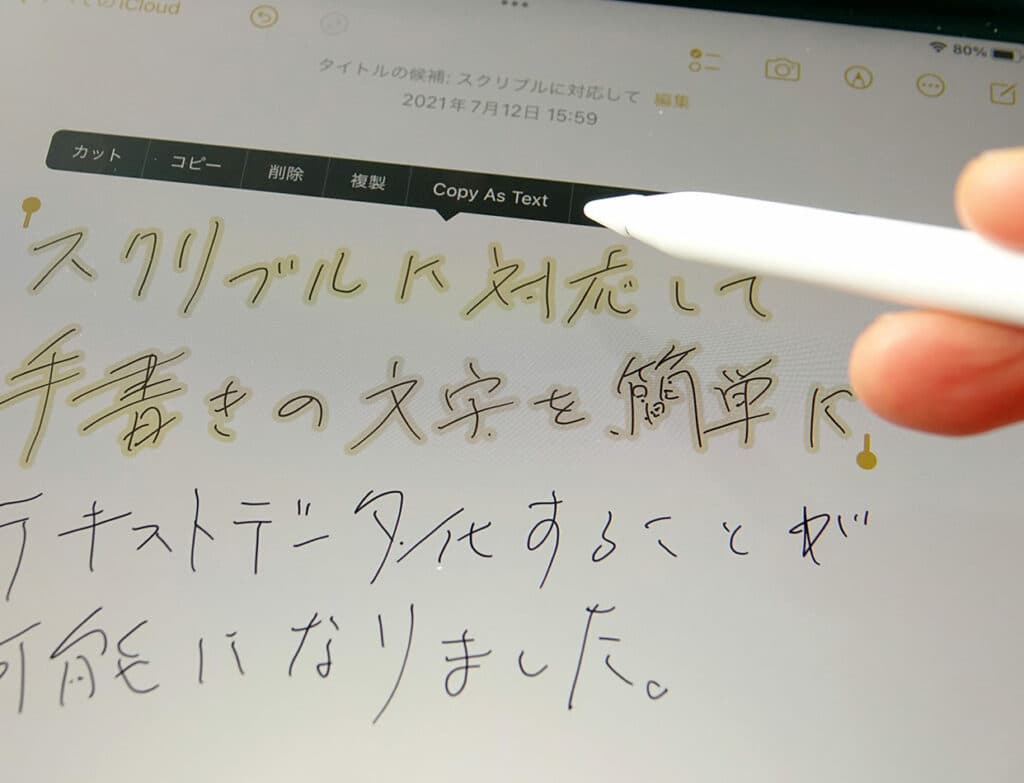 すべてのiCloud
80%
タイトルの候補: スクリブルに対応して 編集
2021年7月12日 15:59
カット コピー 削除 複製 Copy As Text
スクリブルに対応して
手書きの文字を簡単に
テキストデータ化することが
可能になりました。